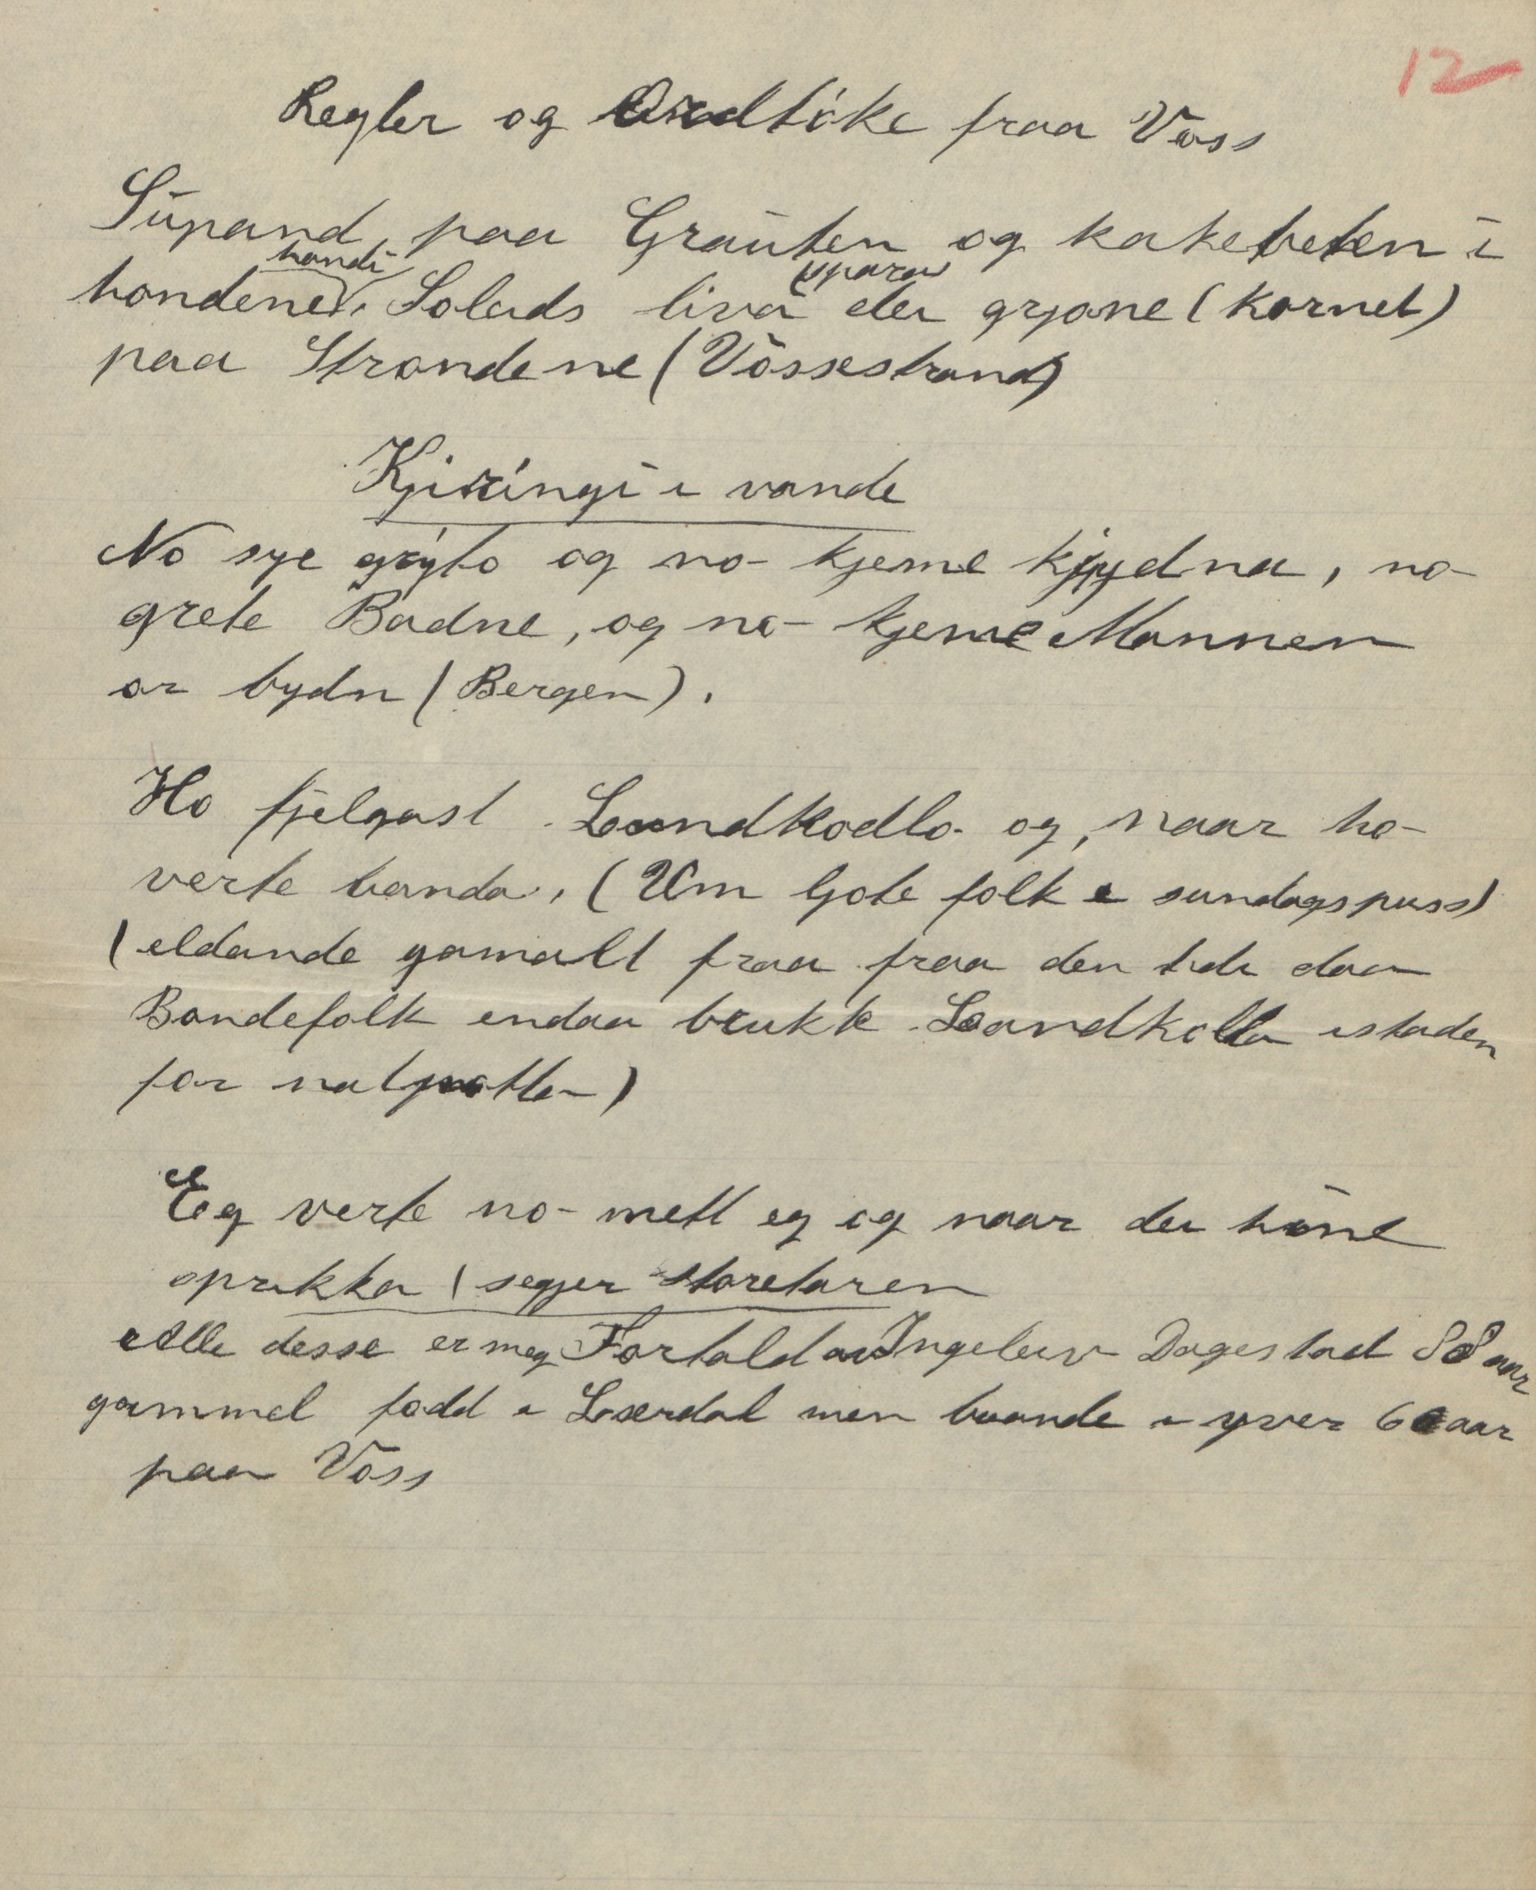 12
Regler og Ordtöke fraa Voss
Supand paa Grauten og kakebeten i
handi
hondene. Solads liva sparar
der grjone (kornet)
paa Strondene (Vossestrand)
Kjiringi i vande
No sye gryto og no kjeme kjydna, no
grete Badne, og no kjeme Mannen
or bydn (Bergen).
Ho fjelgast Landkodlo og, naar ho
verte banda. (Um ljote folk e sundagspuss)
(eldande gamalt fraa fraa den tidi daa
Bondefolk endaa brukte Landkolla istaden
for natpotta)
Eg verte no mett eg og naar der hine
sprikka (segjer staretaren
Alle desse er meg Fortald av Ingeleiv Dagestad 88 aar
gammel fødd i Lærdal men buande i yver 60 aar
paa Voss